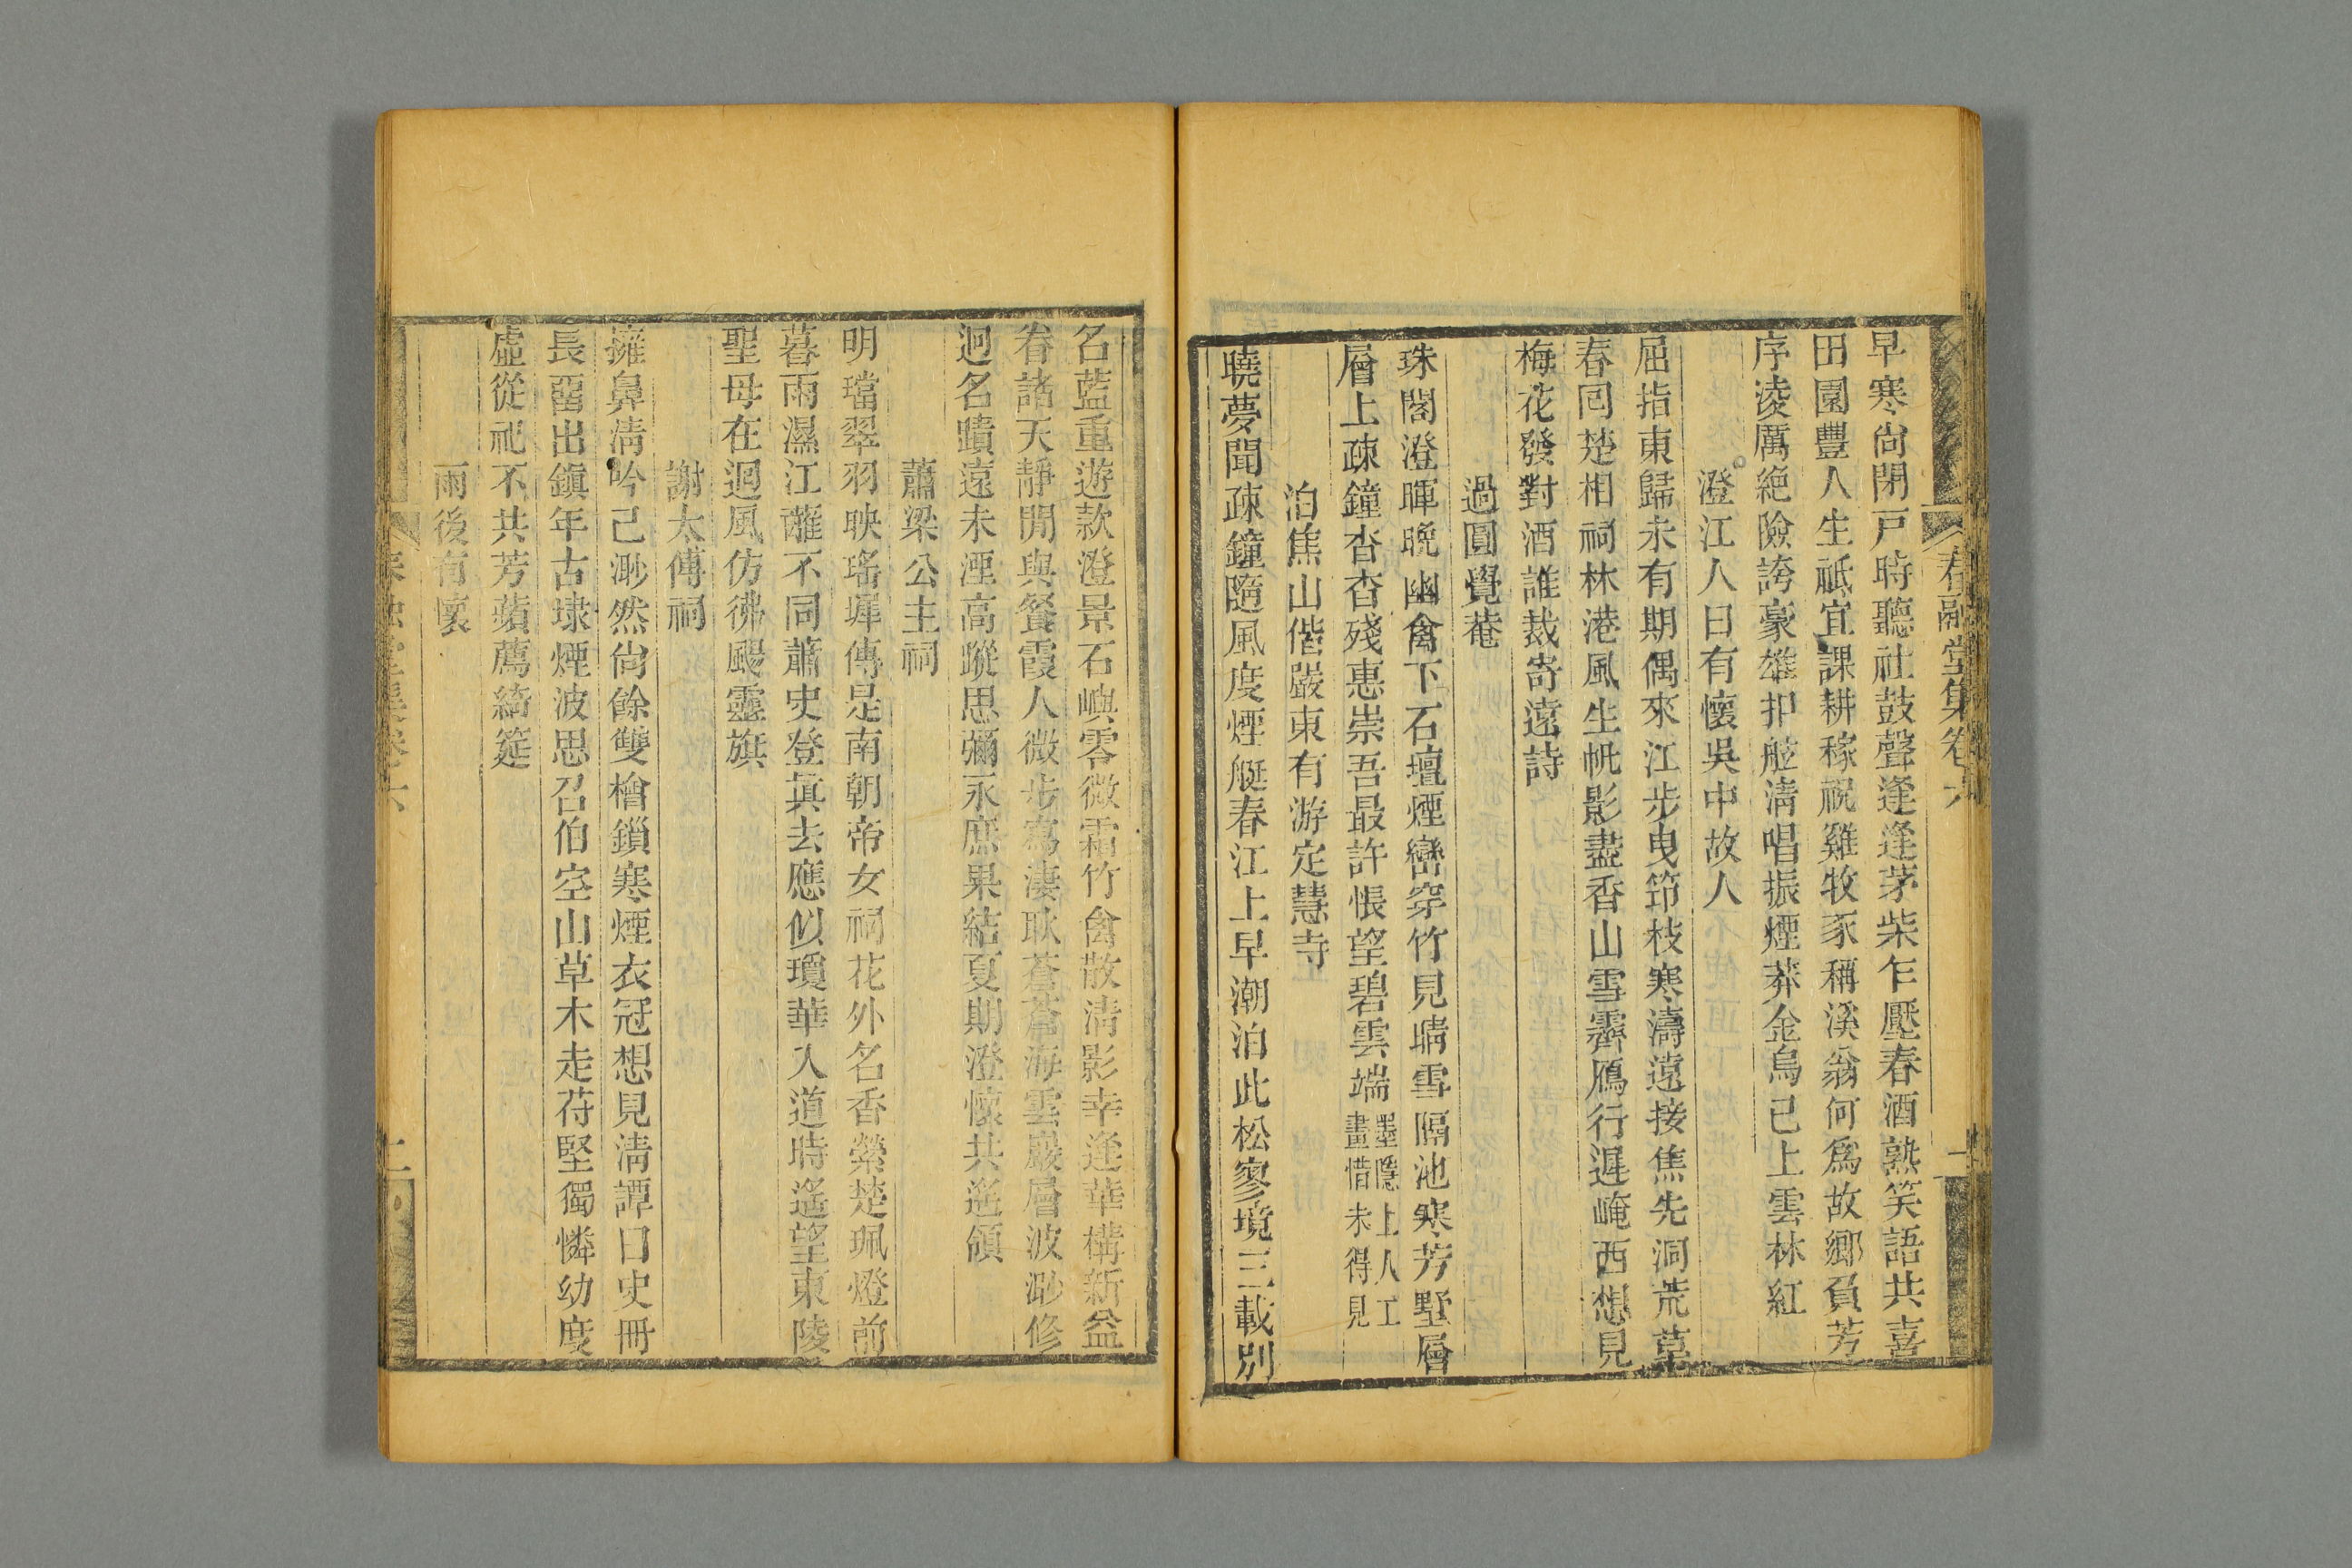 春融堂集卷六
早寒尙閉戸時聽社鼓聲逢逢茅柴乍壓春酒熟笑語共喜
田園豐人生祗宜課耕稼祝雞牧豕稱溪翁何爲故鄉負芳
序凌厲絶險誇豪雄扣舷淸唱振煙莽金烏已上雲林紅
澄江人日有懷吳中故人
屈指東歸未有期偶來江步曳筇枝寒濤遠接焦先洞荒草
春回楚相祠林港風生帆影盡香山雪霽鴈行遲崦西想見
梅花發對酒誰裁寄遠詩
過圓覺菴
珠閣澄暉晩幽禽下石壇煙巒穿竹見晴雪隔池寒芳墅層
層上疎鐘杳杳殘惠崇吾最許悵望碧雲端墨隱上人工
畫惜未得見
泊焦山偕嚴東有游定慧寺
曉夢聞疎鐘隨風度煙艇春江上早潮泊此松寥境三載別
名藍重遊款澄景石嶼零微霜竹禽散淸影幸逢華構新益
眷諸天靜閒與餐霞人微步寫淒耿蒼蒼海雲巖層波渺修
迥名蹟遠未湮高蹤思彌永庶果結夏期澄懷共遙領
蕭梁公主祠
明璫翠羽映瑤墀傳是南朝帝女祠花外名香縈楚珮燈前
暮雨濕江蘺不同蕭史登眞去應似瓊華入道時遙望東陵
聖母在迴風仿彿颺靈旗
謝太傅祠
擁鼻淸吟已渺然尙餘雙檜鎖寒煙衣冠想見淸譚日史冊
長畱出鎭年古埭煙波思召伯空山草木走苻堅獨憐幼度
虛從祀不共芳蘋薦綺筵
雨後有懷